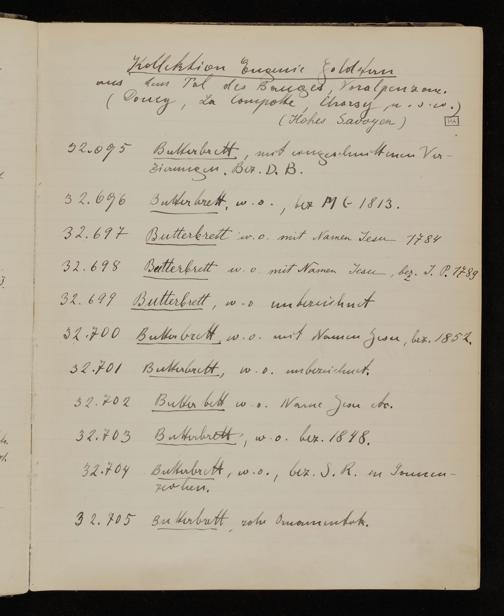 Kollektion Eugenie Goldstern
aus dem Tal des Bauges, Voralpenzone.
(Doucy, La Compotte, u. s. w.)
(Hohes Savoyen)
32.695 Butterbrett, mit eingeschnittenen Ver-
zierungen. Bez. D. B.
32.696 Butterbrett, w. o., bez M G 1813.
32.697 Butterbrett w. o. mit Namen Jesu 1784
32.698 Butterbrett w. o. mit Namen Jesu, bez. J. P. 1789
32.699 Butterbrett, w. o unbezeichnet
32.700 Butterbrett, w. o. mit Namen Jesu, bez. 1852.
32.701 Butterbrett, w. o. unbezeichnet.
32.702 Butterbrett w. o. Name Jesu etc.
32.703 Butterbrett, w. o. bez. 1848.
32.704 Butterbrett, w. o., bez. S. R. m Sonnen-
zeichen.
32.705 Butterbrett, rohe Ornamentik.